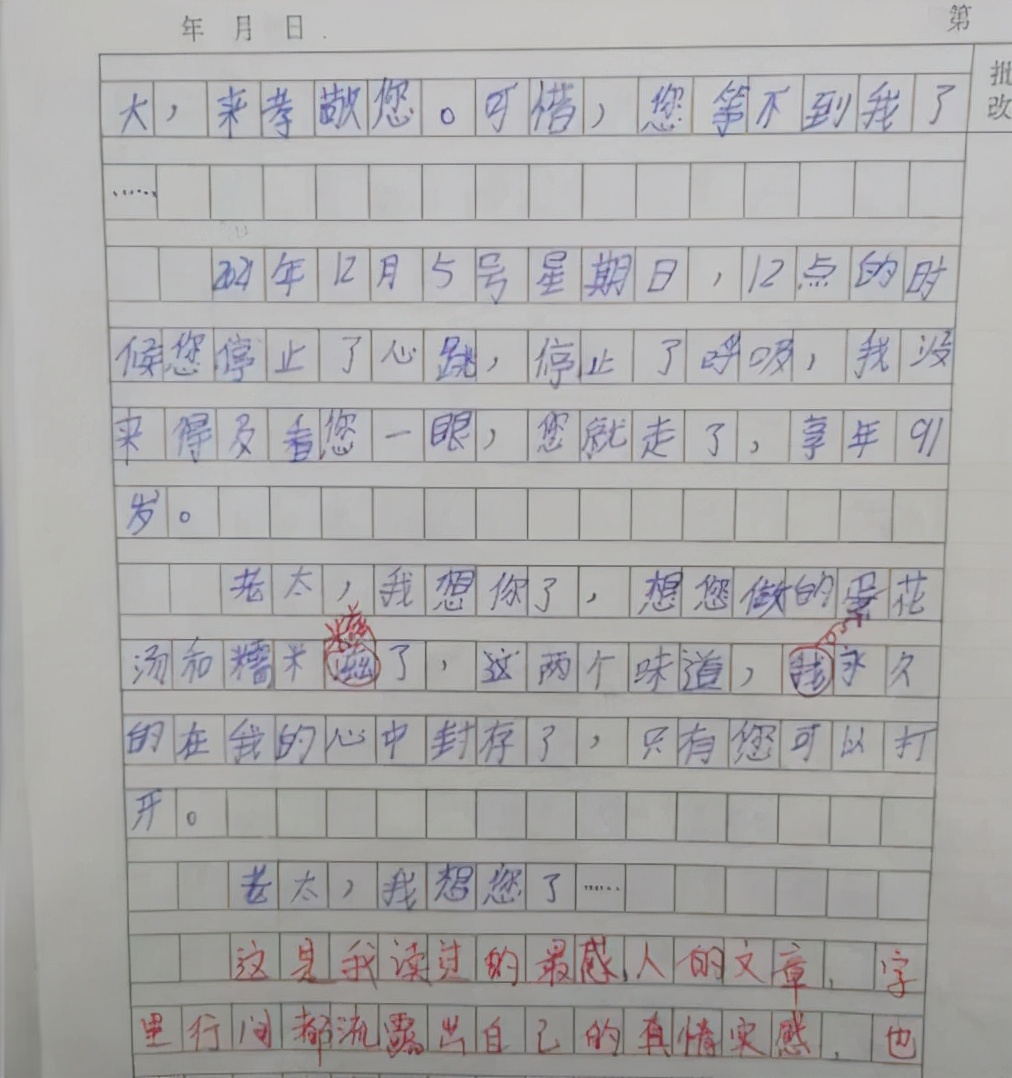 年 月 日
第
批改
大，来孝敬您。可惜，您等不到我了
……
2021年12月5号星期日，12点的时
候您停止了心跳，停止了呼吸，我没
来得及看您一眼，您就走了，享年91
岁。
老太，我想你了，想您做的蛋花
汤和糯米了，这两个味道，我永久
的在我的心中封存了，只有您可以打
开。
老太，我想您了……
这是我读过的最感人的文章，字
里行间都流露出自己的真情实感，也